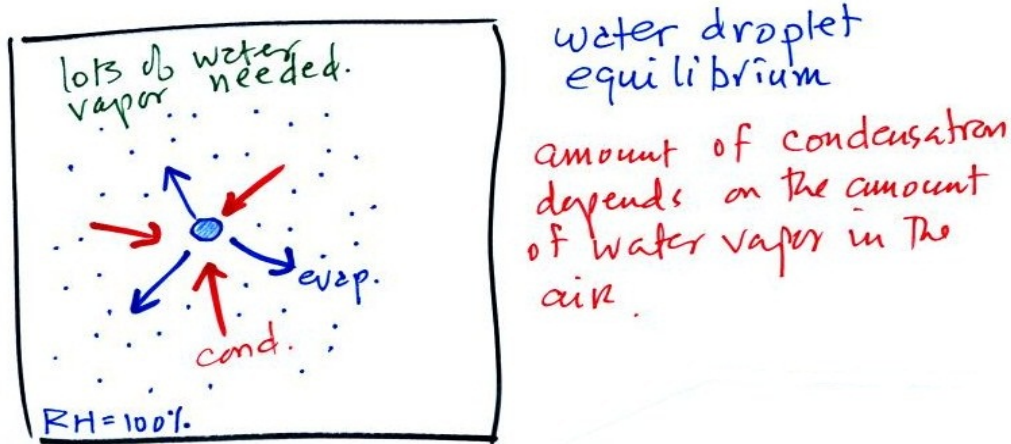 lots of water
vapor needed.
evap.
cond.
RH = 100%
water droplet
equilibrium
amount of condensation
depends on the amount
of water vapor in the
air.